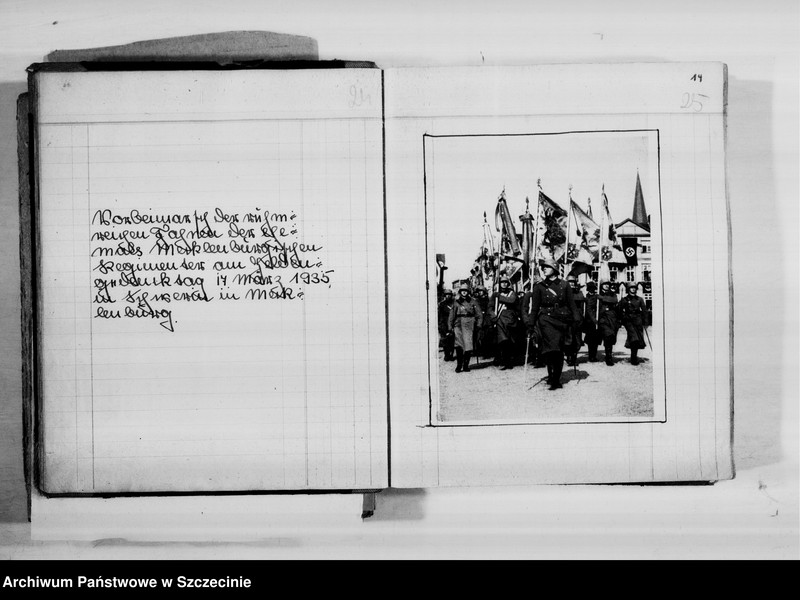 24
Vorbeimarsch der ruhm=
reichen Fahnen der Ehe=
mals Mecklenburgischen
Regimenter am Helden=
gedenktag 17 März 1935,
in Schwerin in Meck=
lenburg.
14
25
Archiwum Państwowe w Szczecinie